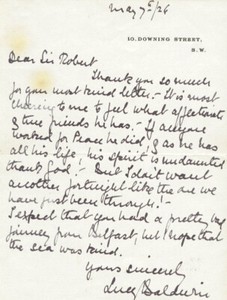 May 7th/26
10, DOWNING STREET,
S.W.
Dear Sir Robert
Thank you so much
for your most kind letter – It is most
cheering to me to feel what affectionate
& true friends he has. – If anyone
worked for Peace he did, & as he has
all his life, his spirit is undaunted
thank God! – But I don't want
another fortnight like the one we
have just been through! –
I expect that you had a pretty big
journey from Belfast, but I hope that
the sea was kind.
Yours sincerely
Lucy Baldwin